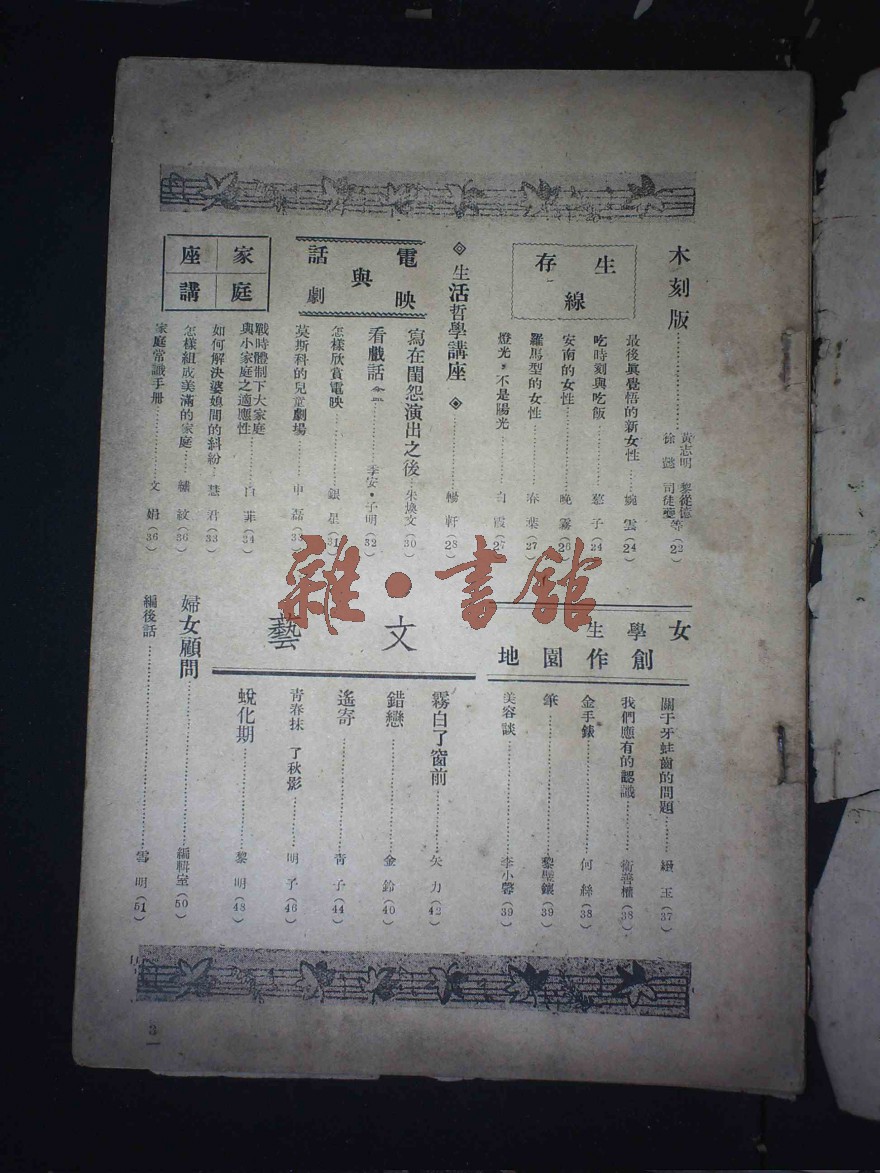 木刻版……黃志明 黎從德
徐懿 司徒 等(22)
生存線
最後眞覺悟的新女性……婉雲(24)
吃時刻與吃飯……子(24)
安南的女性……晚霧(26)
羅馬型的女性……春葉(27)
燈光，不是陽光……白霞(27)
◈生活哲學講座◈……軒(28)
電映與話劇
寫在閨怨演出之後……朱煥文(30)
看戲話……季安・子明(32)
怎樣欣賞電映……銀星(31)
莫斯科的兒童劇場……申磊(33)
家庭講座
戰時體制下大家庭
與小家庭之適應性……白菲(34)
如何解決婆媳間的糾紛……慧君(33)
怎樣組成美滿的家庭……繡紋(36)
家庭常識手册……文娟(36)
女學生創作園地
關于牙蛀齒的問題……玉(37)
我們應有的認識……衛善權(38)
金手錶……何絲(38)
筆……黎(39)
美容談……李小馨(39)
文藝
霧白了窗前……矢力(42)
錯戀……金鈴(40)
遙寄……青子(44)
青春抹了秋影……明予(46)
蛻化期……黎明(48)
婦女顧問……編輯室(50)
編後話……雪明(51)
3
雜・書館